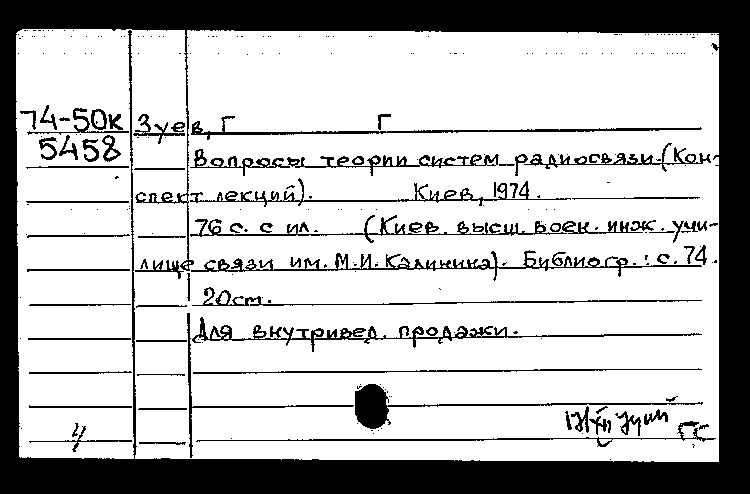 74-50к Зуев, Г Г
5458
Вопросы теории систем радиосвязи. (Кон-
спект лекций). Киев, 1974.
76 с. с ил. (Киев. высш. воен. инж. учи-
лище связи им. М.И. Калинина). Библиогр.: с. 74.
20см.
Для внутривед. продажи.
ГС